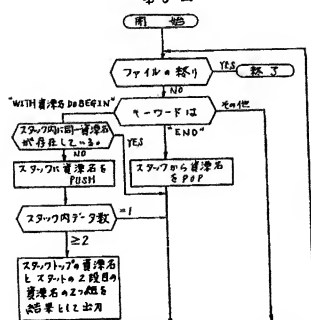 開始
ファイルの終り
YES
終了
NO
"WITH資源名DOBEGIN"
キーワードは
その他
"END"
スタック内に同一資源名
が存在している。
YES
NO
スタックに資源名を
PUSH
スタックから資源名
をPOP
スタック内データ数
=1
≥2
スタックトップの資源名
とスタットの2段目の
資源名の2つ組を
結果として出力